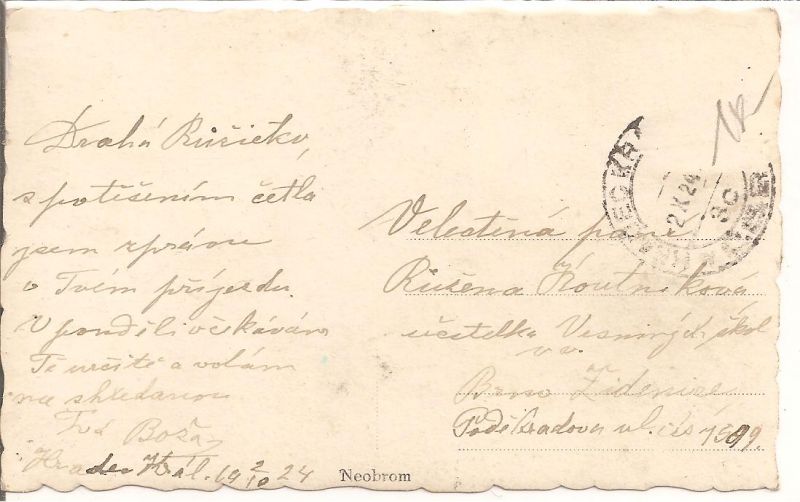 Drahá Růžičko,
s potěšením četla
jsem zprávu
o Tvém příjezdu.
V pondělí očekávám
Tě určitě a volám
na shledanou
Tvá Boža
Hradec Král. 19 2/10 24
Velectěná paní
Růžena Koutníková
učitelka Vesniných škol
v v.
Brno Židenice
Poděbradova ul. čís 1509.
2.X.24
Neobrom